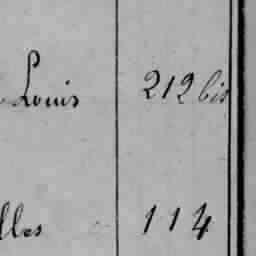 Louis 212 bis
lles 114